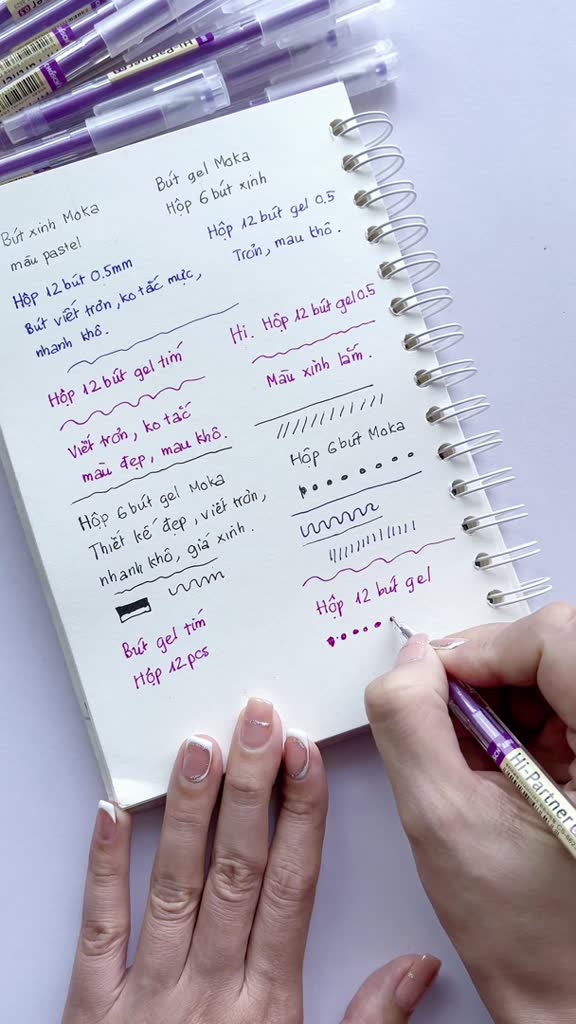 Hi-Partner
Bút gel Moka
Hộp 6 bút xinh
Bút xinh Moka
màu pastel
Hộp 12 bút gel 0.5
Trơn, mau khô.
Hộp 12 bút 0.5mm
Bút viết trơn, ko tắc mực,
nhanh khô.
Hi. Hộp 12 bút gel 0.5
Màu xinh lắm.
Hộp 12 bút gel tím
Viết trơn, ko tắc
màu đẹp, mau khô.
Hộp 6 bút Moka
Hộp 6 bút gel Moka
Thiết kế đẹp, viết trơn,
nhanh khô, giá xinh.
Hộp 12 bút gel
Bút gel tím
Hộp 12 pcs
Hi-Partner